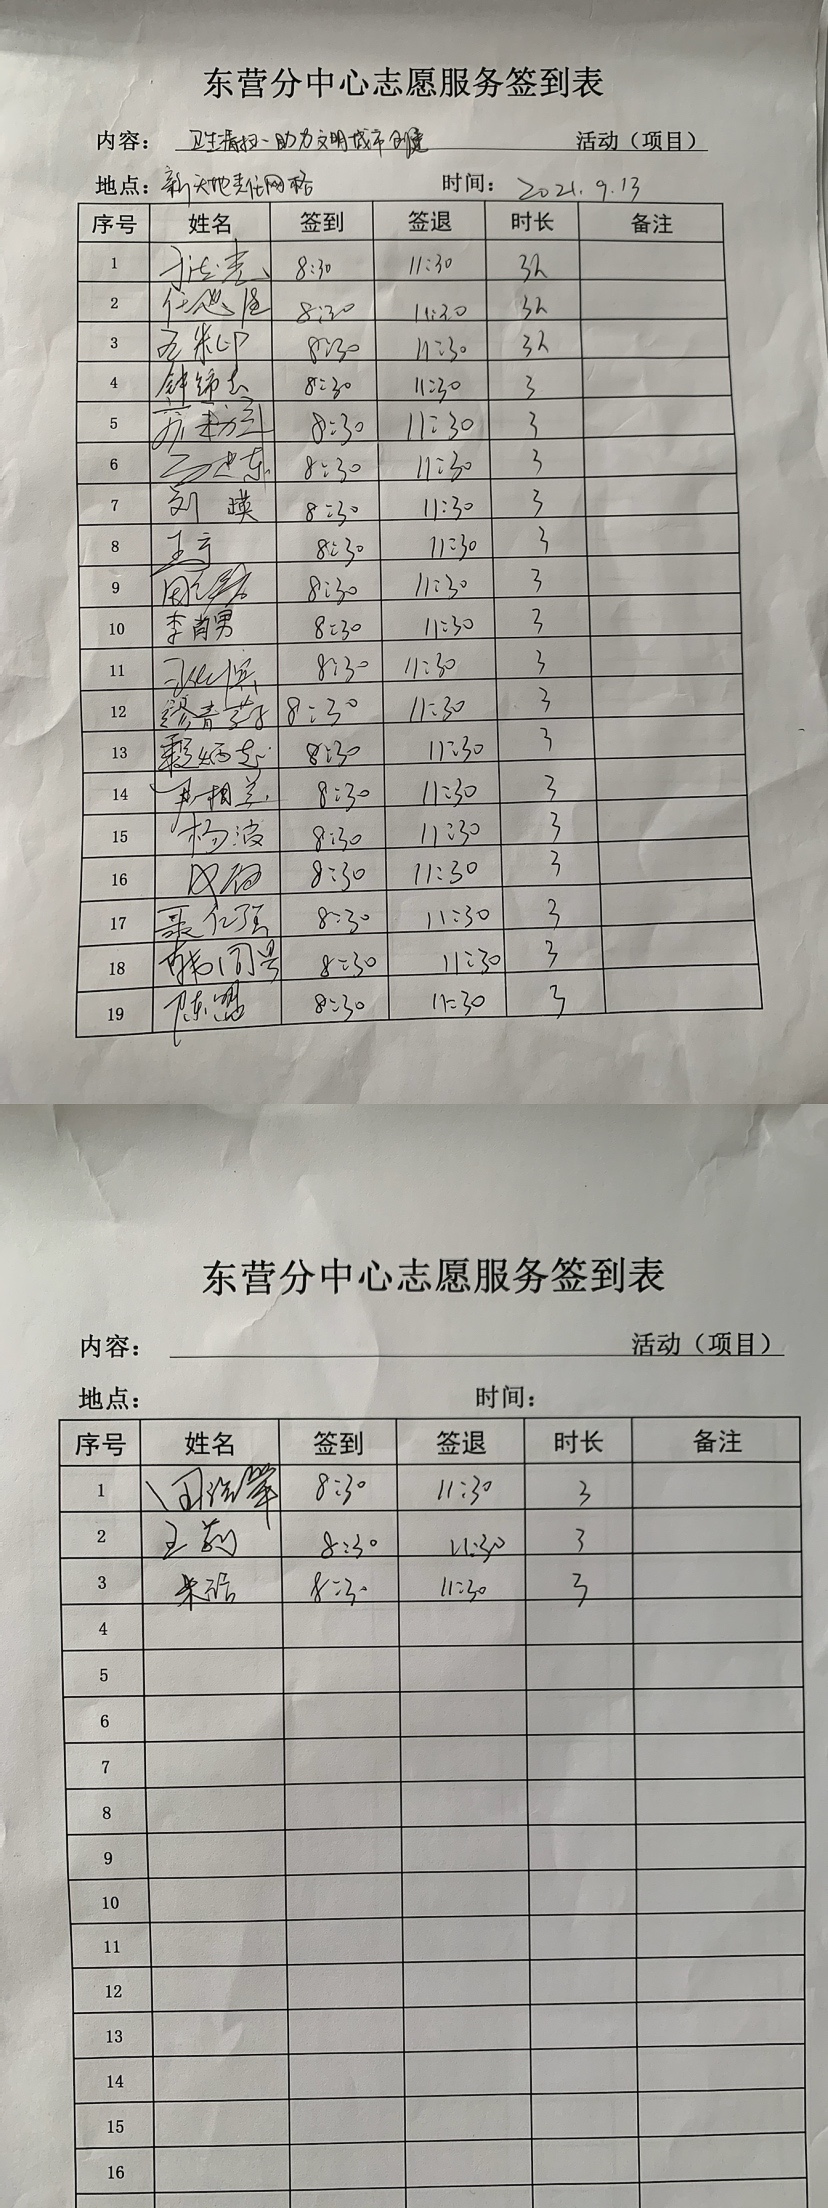 东营分中心志愿服务签到表
内容： 卫生清扫-助力文明城市创建 活动（项目）
地点：新天地责任网格 时间： 2021.9.13
序号 姓名 签到 签退 时长 备注
1 8:30 11:30 3h
2 8:30 11:30 3h
3 8:30 11:30 3h
4 8:30 11:30 3
5 8:30 11:30 3
6 8:30 11:30 3
7 刘瑛 8:30 11:30 3
8 王宁 8:30 11:30 3
9 8:30 11:30 3
10 李肖男 8:30 11:30 3
11 8:30 11:30 3
12 8:30 11:30 3
13 8:30 11:30 3
14 8:30 11:30 3
15 杨波 8:30 11:30 3
16 8:30 11:30 3
17 8:30 11:30 3
18 8:30 11:30 3
19 8:30 11:30 3
东营分中心志愿服务签到表
内容： 活动（项目）
地点： 时间：
序号 姓名 签到 签退 时长 备注
1 8:30 11:30 3
2 王莉 8:30 11:30 3
3 8:30 11:30 3
4
5
6
7
8
9
10
11
12
13
14
15
16